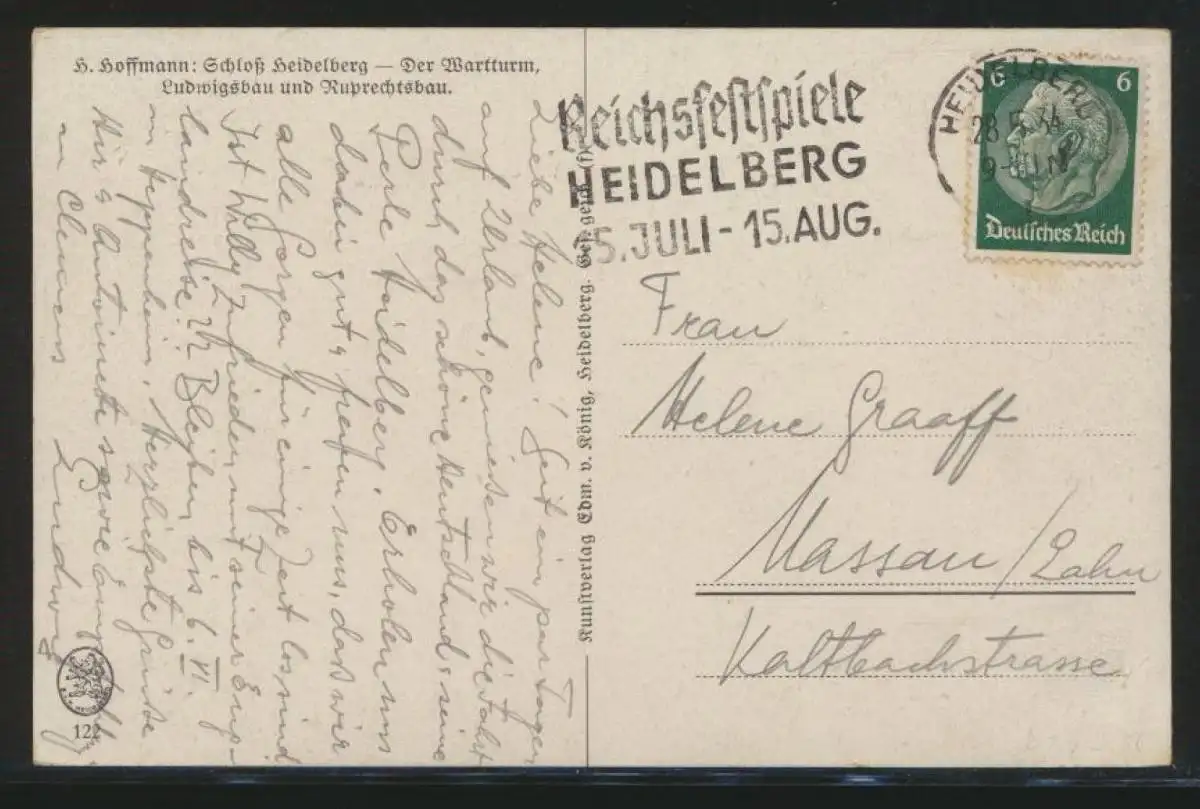 H. Hoffmann: Schloß Heidelberg — Der Wartturm,
Ludwigsbau und Ruprechtsbau.
Liebe Helene! Seit ein paar Tagen
auf Urlaub, geniessen wir die Fahrt
durch das schöne Deutschland, seine
Perle Heidelberg. Erholen uns
dabei gut & freuen uns, dass wir
alle Sorgen für einige Zeit los sind
Ist Willy zufrieden mit seiner
landreise? Bleiben bis 6. VI.
in Heppenheim. Herzlichste Grüsse
Dir & sowie
an Clemens Ludwig
122
Kunstverlag Edm. v. König, Heidelberg. Ges. gesch.
Reichsfestspiele
HEIDELBERG
15. JULI - 15. AUG.
HEIDELBERG
28.5.34
6 6
Deutsches Reich
Frau
Helene Graaff
Nassau/Lahn
Kaltbachstrasse